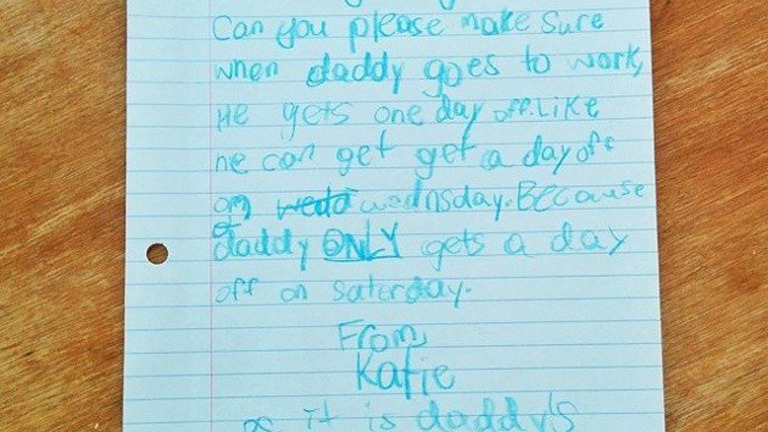 Can you please make sure
when daddy goes to work,
He gets one day off. Like
he can get get a day off
on wednsday. Because
daddy ONLY gets a day
off on saterday.
From,
Katie
it is daddy's